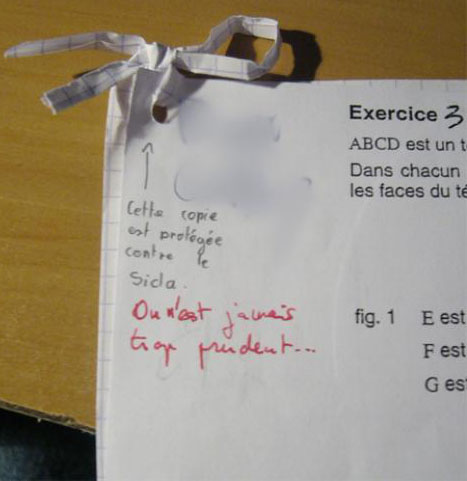 Exercice 3
ABCD est un t
Dans chacun
les faces du té
↑
Cette copie
est protégée
contre le
Sida.
On n'est jamais
trop prudent...
fig. 1 E est
F est
G es